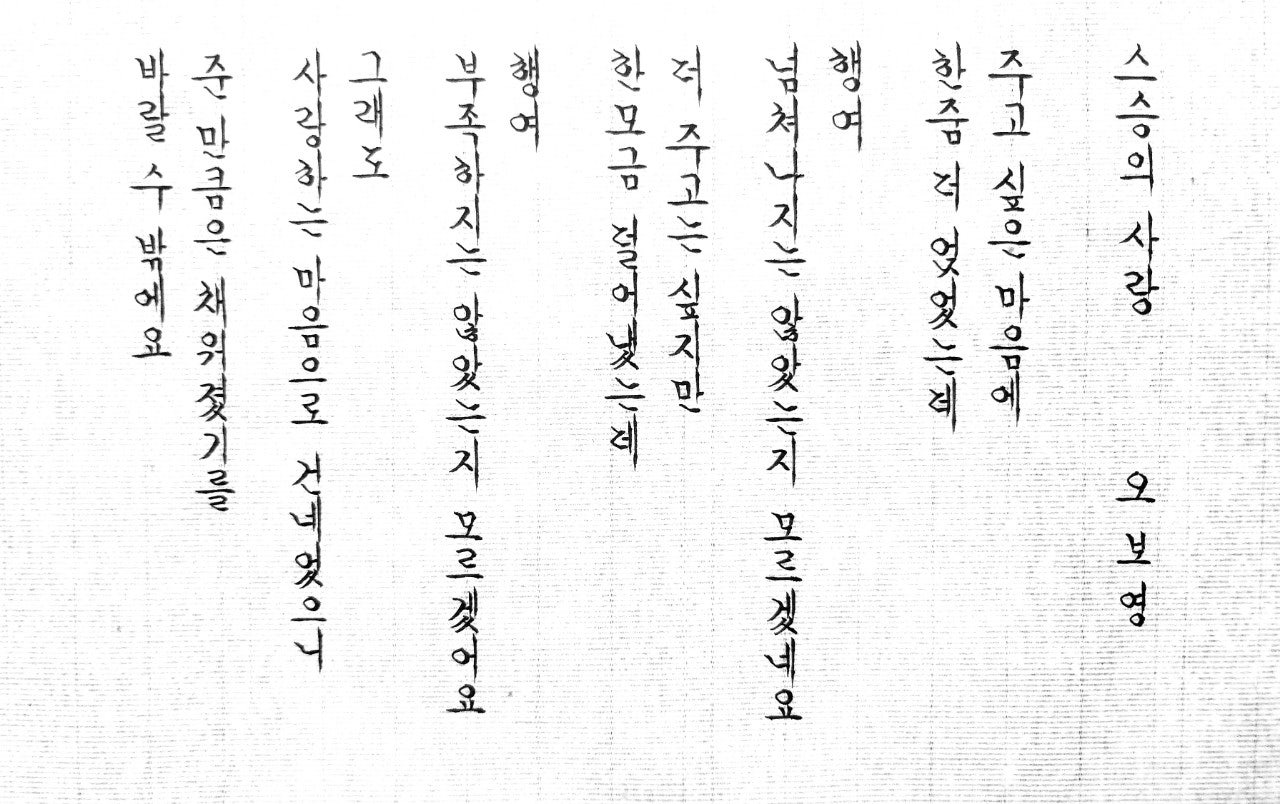 스승의 사랑 오보영
주고 싶은 마음에
한줌 더 얹었는데
행여
넘쳐나지는 않았는지 모르겠네요
더 주고는 싶지만
한모금 덜어냈는데
행여
부족하지는 않았는지 모르겠어요
그래도
사랑하는 마음으로 건네었으니
준 만큼은 채워졌기를
바랄 수 밖에요